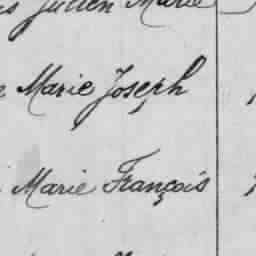 Julien Marie
Marie Joseph
Marie François